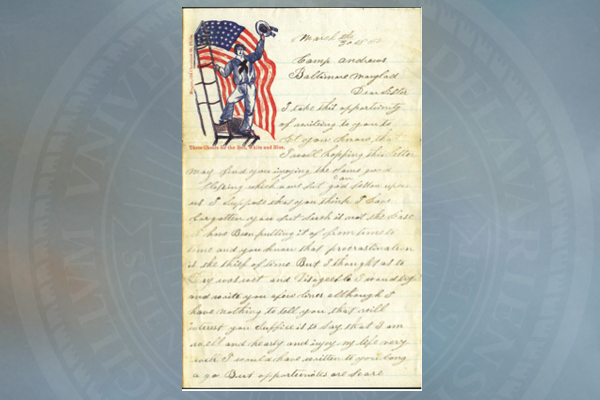 March the
Camp Andrews
Baltimore Maryland
Dear Sister
I take this opportunity
of writing to you to
let you know that
I am well hopping this letter
Three Cheers for the Red, White and Blue.
may find you injoying the same good
Blessing which our
us I suppose that you think I have
forgotten you but such is not the Case
I have Been putting it of from time to
time and you know that procrastination
is the thief of time But I thought as to
Day was wet and I would try
and write you a few lines although I
have nothing to tell you that will
interest you Suffice it to Say that I am
well and hearty and injoy my life very
I would have written to you long
a go But opportunities are scarc